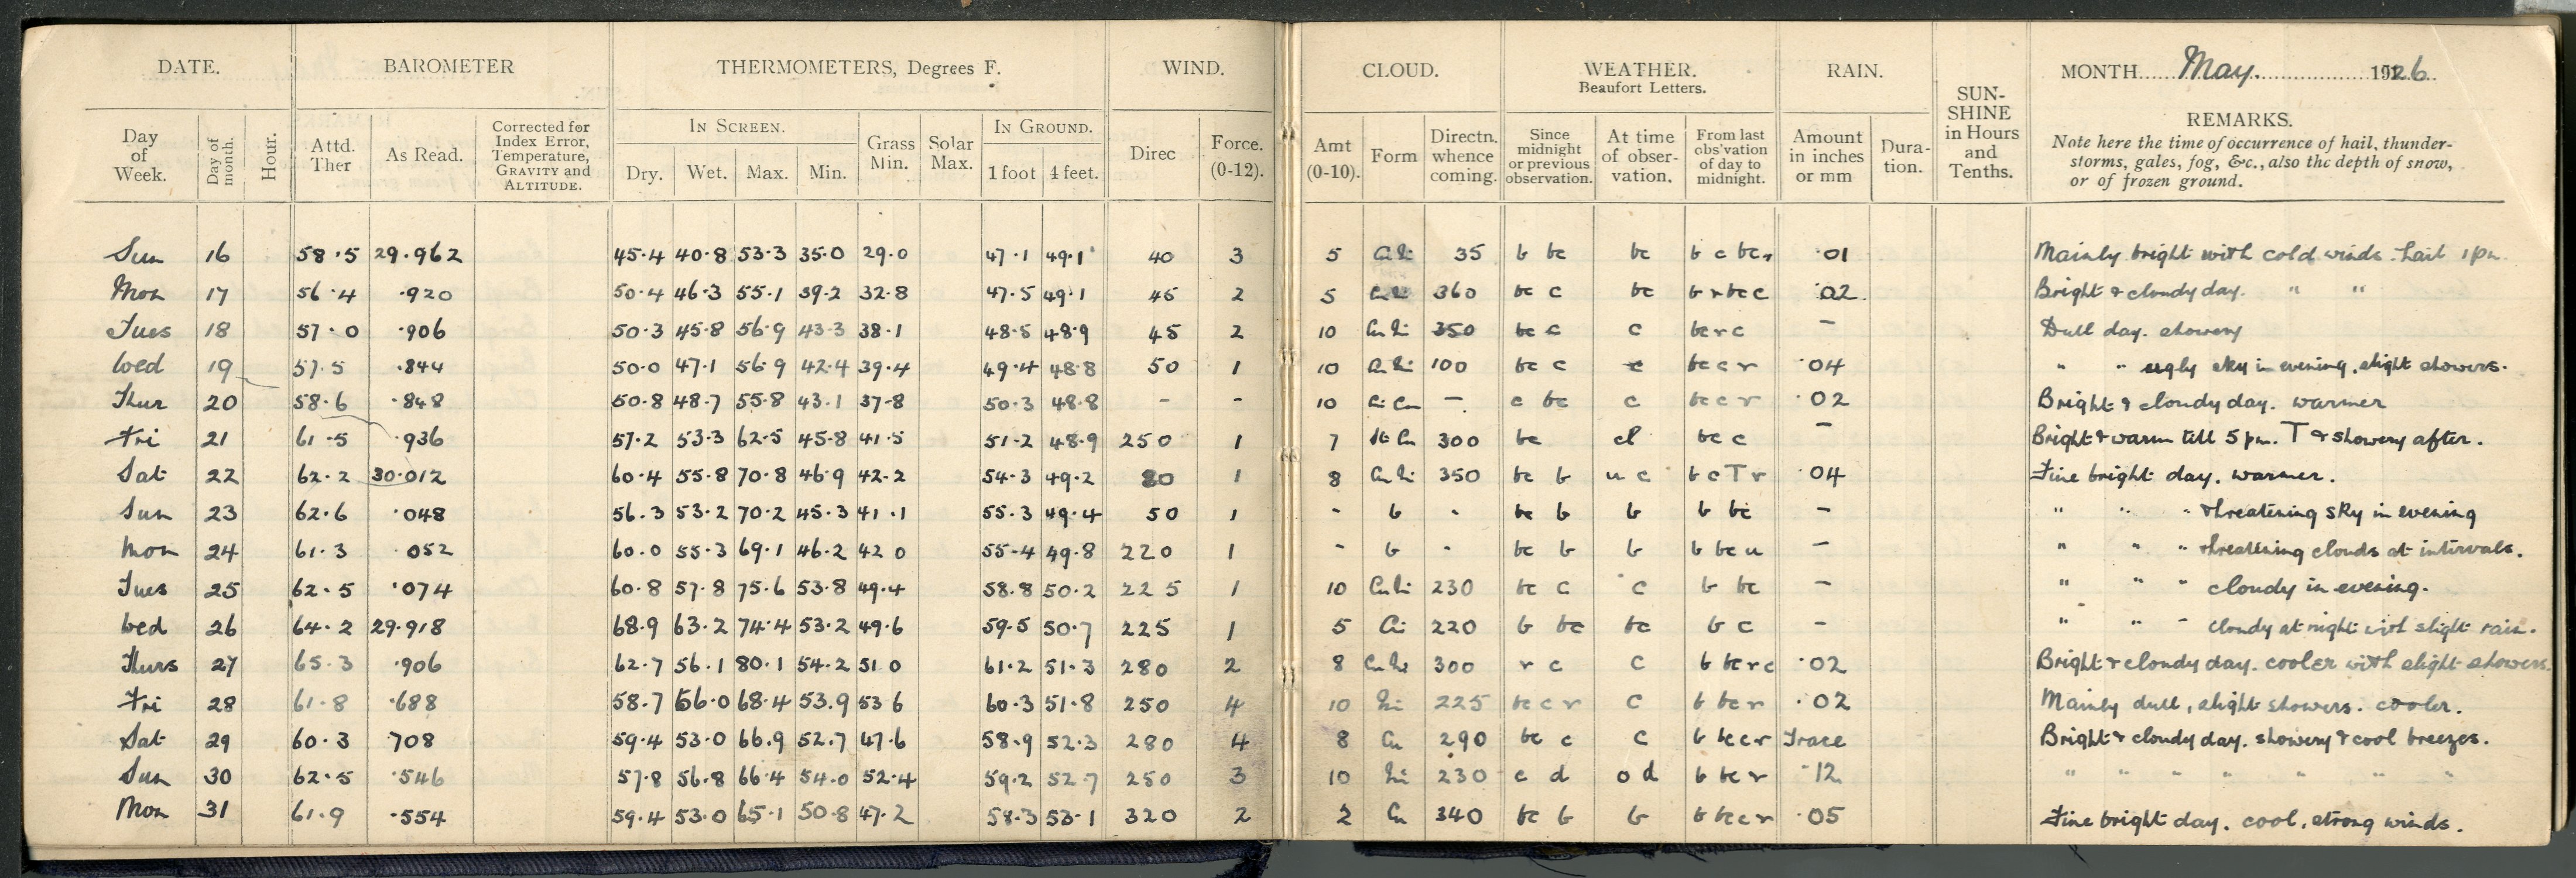 DATE. BAROMETER THERMOMETERS, Degrees F. WIND. CLOUD. WEATHER. Beaufort Letters. RAIN. SUN-SHINE in Hours and Tenths. MONTH May. 1926
REMARKS.
Note here the time of occurrence of hail, thunder-
storms, gales, fog, &c., also the depth of snow,
or of frozen ground.
IN SCREEN. IN GROUND.
Day of Week. Day of month. Hour. Attd. Ther As Read. Corrected for Index Error, Temperature, GRAVITY and ALTITUDE. Dry. Wet. Max. Min. Grass Min. Solar Max. 1 foot 4 feet. Direc Force. (0-12). Amt (0-10). Form Directn. whence coming. Since midnight or previous observation. At time of obser-vation. From last obs'vation of day to midnight. Amount in inches or mm Dura-tion.
Sun 16 58.5 29.962 45.4 40.8 53.3 35.0 29.0 47.1 49.1 40 3 5 35 b bc bc b c bcr .01 Mainly bright with cold winds. hail 1pm.
Mon 17 56.4 .920 50.4 46.3 55.1 39.2 32.8 47.5 49.1 45 2 5 360 bc c bc b r bc c .02 Bright & cloudy day. " "
Tues 18 57.0 .906 50.3 45.8 56.9 43.3 38.1 48.5 48.9 45 2 10 350 bc c c bc r c – Dull day. showery
Wed 19 57.5 .844 50.0 47.1 56.9 42.4 39.4 49.4 48.8 50 1 10 100 bc c c bc c r .04 " " ugly sky in evening, slight showers.
Thur 20 58.6 .848 50.8 48.7 55.8 43.1 37.8 50.3 48.8 – – 10 Ci Cu – c bc c bc c r .02 Bright & cloudy day. warmer
Fri 21 61.5 .936 57.2 53.3 62.5 45.8 41.5 51.2 48.9 250 1 7 St Cu 300 bc cl bc c – Bright & warm till 5 pm. T & showery after.
Sat 22 62.2 30.012 60.4 55.8 70.8 46.9 42.2 54.3 49.2 1 8 350 bc b u c b c T r .04 Fine bright day. warmer.
Sun 23 62.6 .048 56.3 53.2 70.2 45.3 41.1 55.3 49.4 50 1 - b - bc b b b bc – " " " threatening sky in evening
Mon 24 61.3 .052 60.0 55.3 69.1 46.2 42 0 55.4 49.8 220 1 - b - bc b b b bc u – " " " threatening clouds at intervals.
Tues 25 62.5 .074 60.8 57.8 75.6 53.8 49.4 58.8 50.2 225 1 10 230 bc c c b bc – " " " cloudy in evening.
Wed 26 64.2 29.918 68.9 63.2 74.4 53.2 49.6 59.5 50.7 225 1 5 Ci 220 b bc bc b c – " " " cloudy at night with slight rain.
Thurs 27 65.3 .906 62.7 56.1 80.1 54.2 51 0 61.2 51.3 280 2 8 300 r c c b bc r c .02 Bright & cloudy day. cooler with slight showers.
Fri 28 61.8 .688 58.7 56.0 68.4 53.9 53 6 60.3 51.8 250 4 10 225 bc c r c b bc r .02 Mainly dull, slight showers. cooler.
Sat 29 60.3 708 59.4 53.0 66.9 52.7 47.6 58.9 52.3 280 4 8 Cu 290 bc c c b bc c r Trace Bright & cloudy day. showery & cool breezes.
Sun 30 62.5 .546 57.8 56.8 66.4 54.0 52.4 59.2 52.7 250 3 10 230 c d o d b bc r .12 " " " " " " "
Mon 31 61.9 .554 59.4 53.0 65.1 50.8 47.2 58.3 53.1 320 2 2 Cu 340 bc b b b bc c r .05 Fine bright day. cool, strong winds.